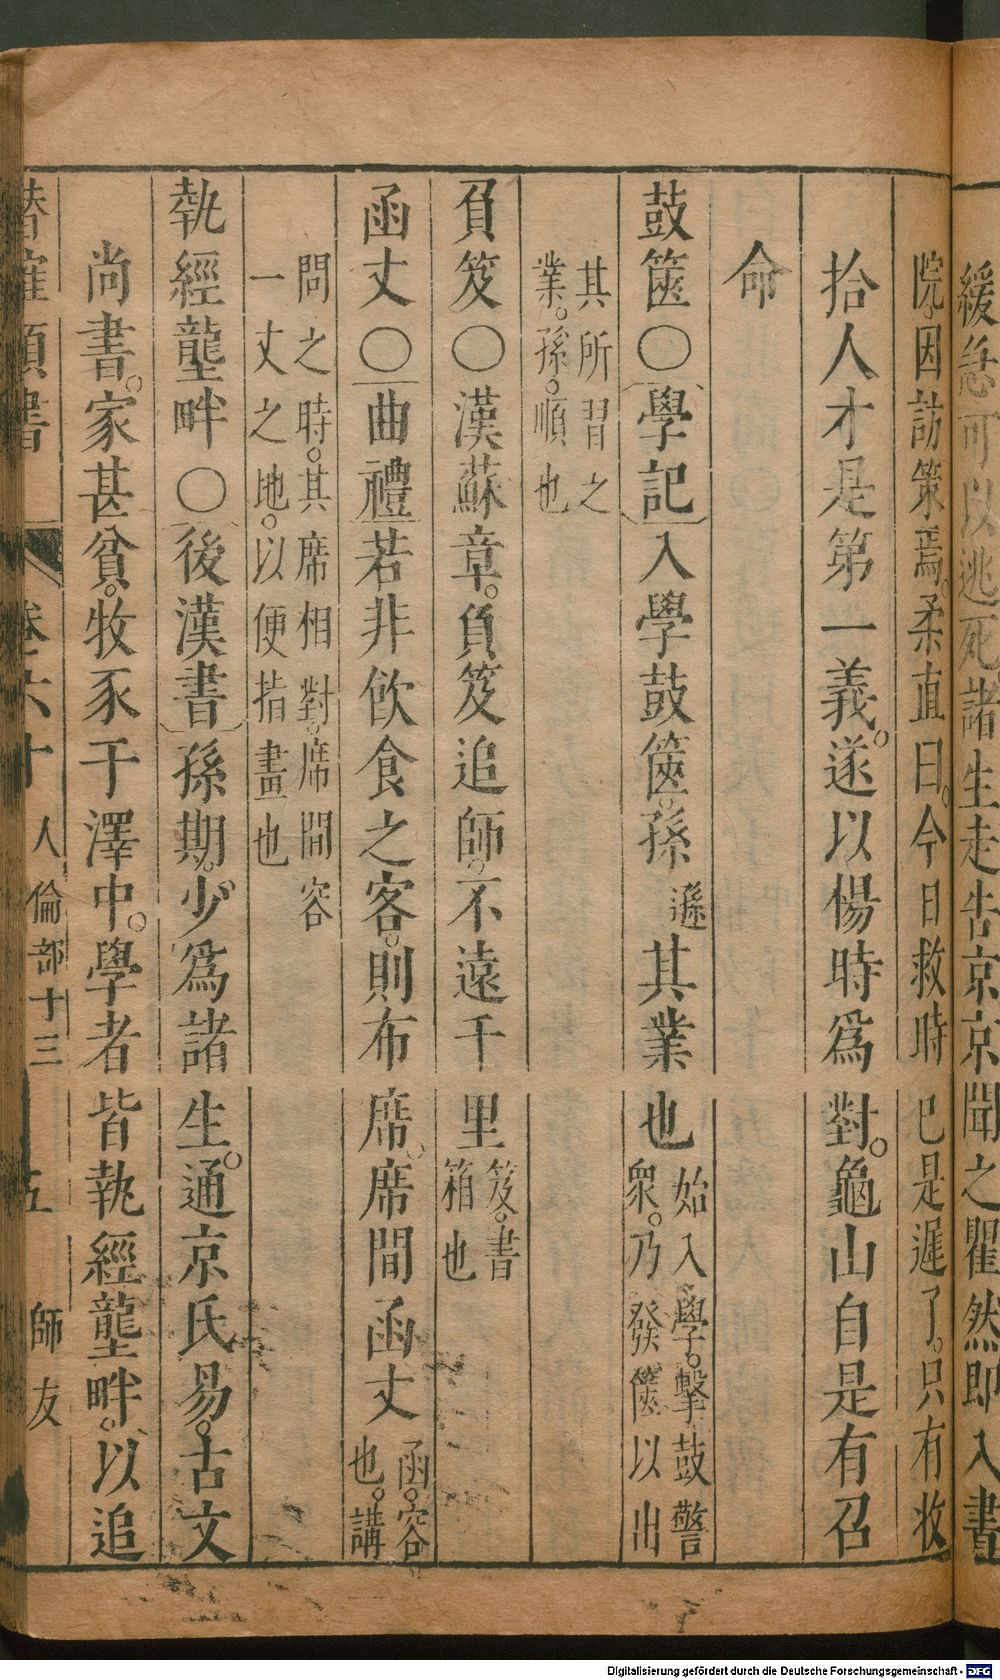 緩急可以逃死諸生走告京京聞之瞿然即入書
院因訪策焉柔直曰今日救時已是遲了只有收
拾人才是第一義遂以楊時爲對龜山自是有召
命
鼓篋○學記入學鼓篋孫遜其業也始入學擊鼓警衆乃發篋以出
其所習之業孫順也
負笈○漢蘇章負笈追師不遠千里笈書箱也
函丈○曲禮若非飲食之客則布席席間函丈函容也講
問之時其席相對席間容一丈之地以便指畫也
執經壟畔○後漢書孫期少爲諸生通京氏易古文
尚書家甚貧牧豕于澤中學者皆執經壟畔以追
潛確類書 卷六十 人倫部十三 五 師友
Digitalisierung gefördert durch die Deutsche Forschungsgemeinschaft - DFG